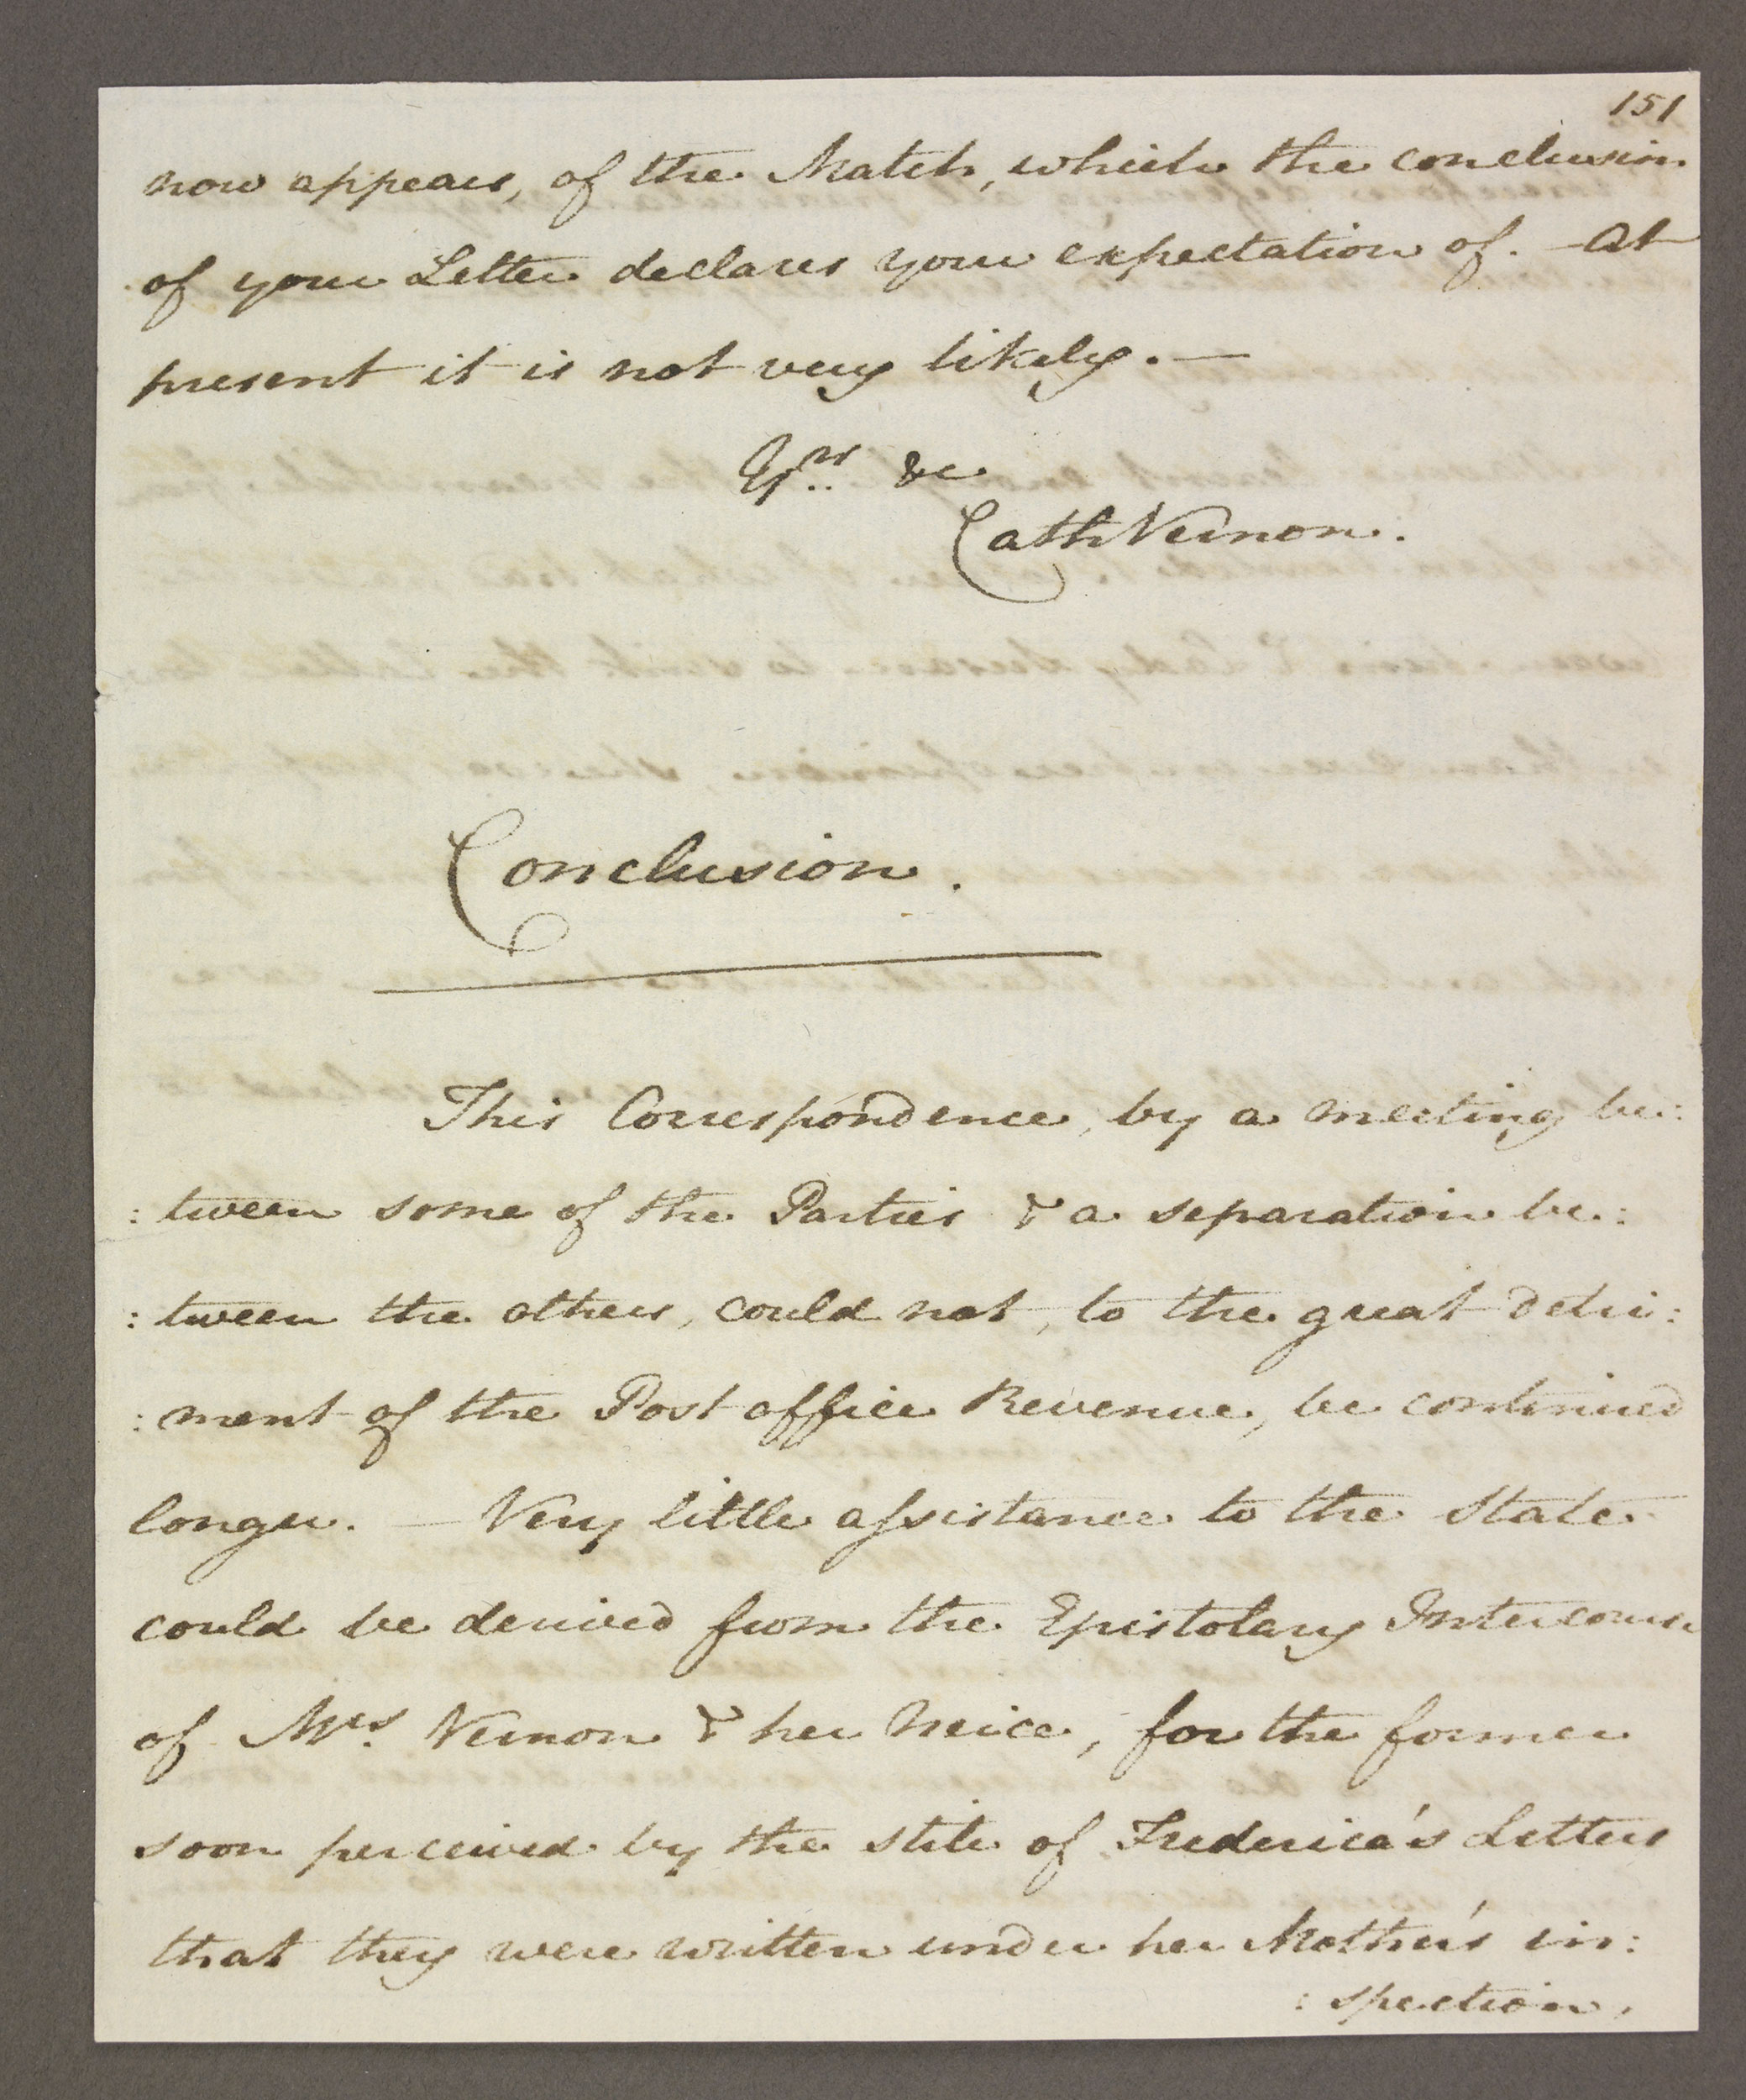 151
now appears, of the Match, which the conclusion
of your Letter declares your expectation of. – At
present it is not very likely. —
Yrs. &c
Cath Vernon.
Conclusion.
This Correspondence, by a meeting be:
:tween some of the Parties & a separation be:
:tween the others, could not, to the great detri:
:ment of the Post office Revenue, be continued
longer. — Very little assistance to the State
could be derived from the Epistolary Intercourse
of Mrs. Vernon & her Neice, for the former
soon perceived by the stile of Frederica's Letters
that they were written under her Mother's in:
:spection,